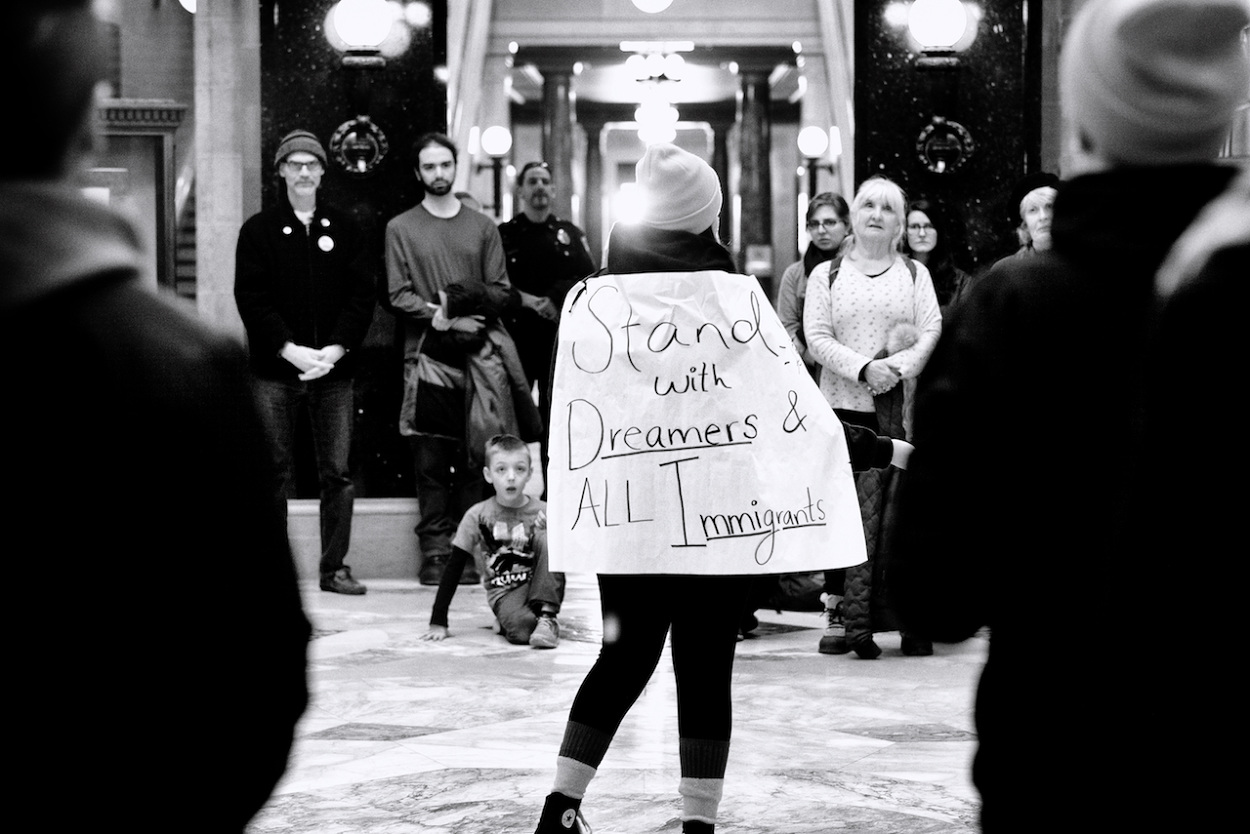 Stand
with
Dreamers &
ALL Immigrants